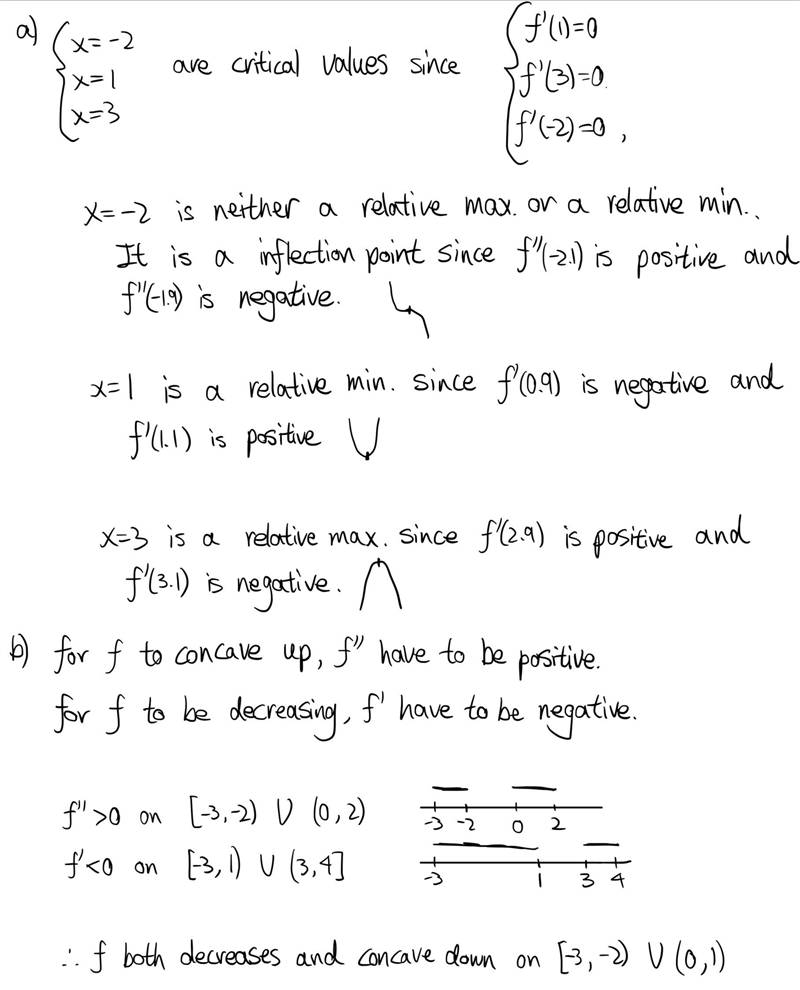 a) { x=-2 x=1 x=3 are critical values since { f'(1)=0 f'(3)=0. f'(-2)=0 ,
x=-2 is neither a relative max. or a relative min..
It is a inflection point since f''(-2.1) is positive and
f''(-1.9) is negative.
x=1 is a relative min. since f'(0.9) is negative and
f'(1.1) is positive
x=3 is a relative max. since f'(2.9) is positive and
f'(3.1) is negative.
b) for f to concave up, f'' have to be positive.
for f to be decreasing, f' have to be negative.
f''>0 on [-3,-2) ∪ (0,2)
-3 -2 0 2
f'<0 on [-3,1) ∪ (3,4]
-3 1 3 4
∴ f both decreases and concave down on [-3,-2) ∪ (0,1)